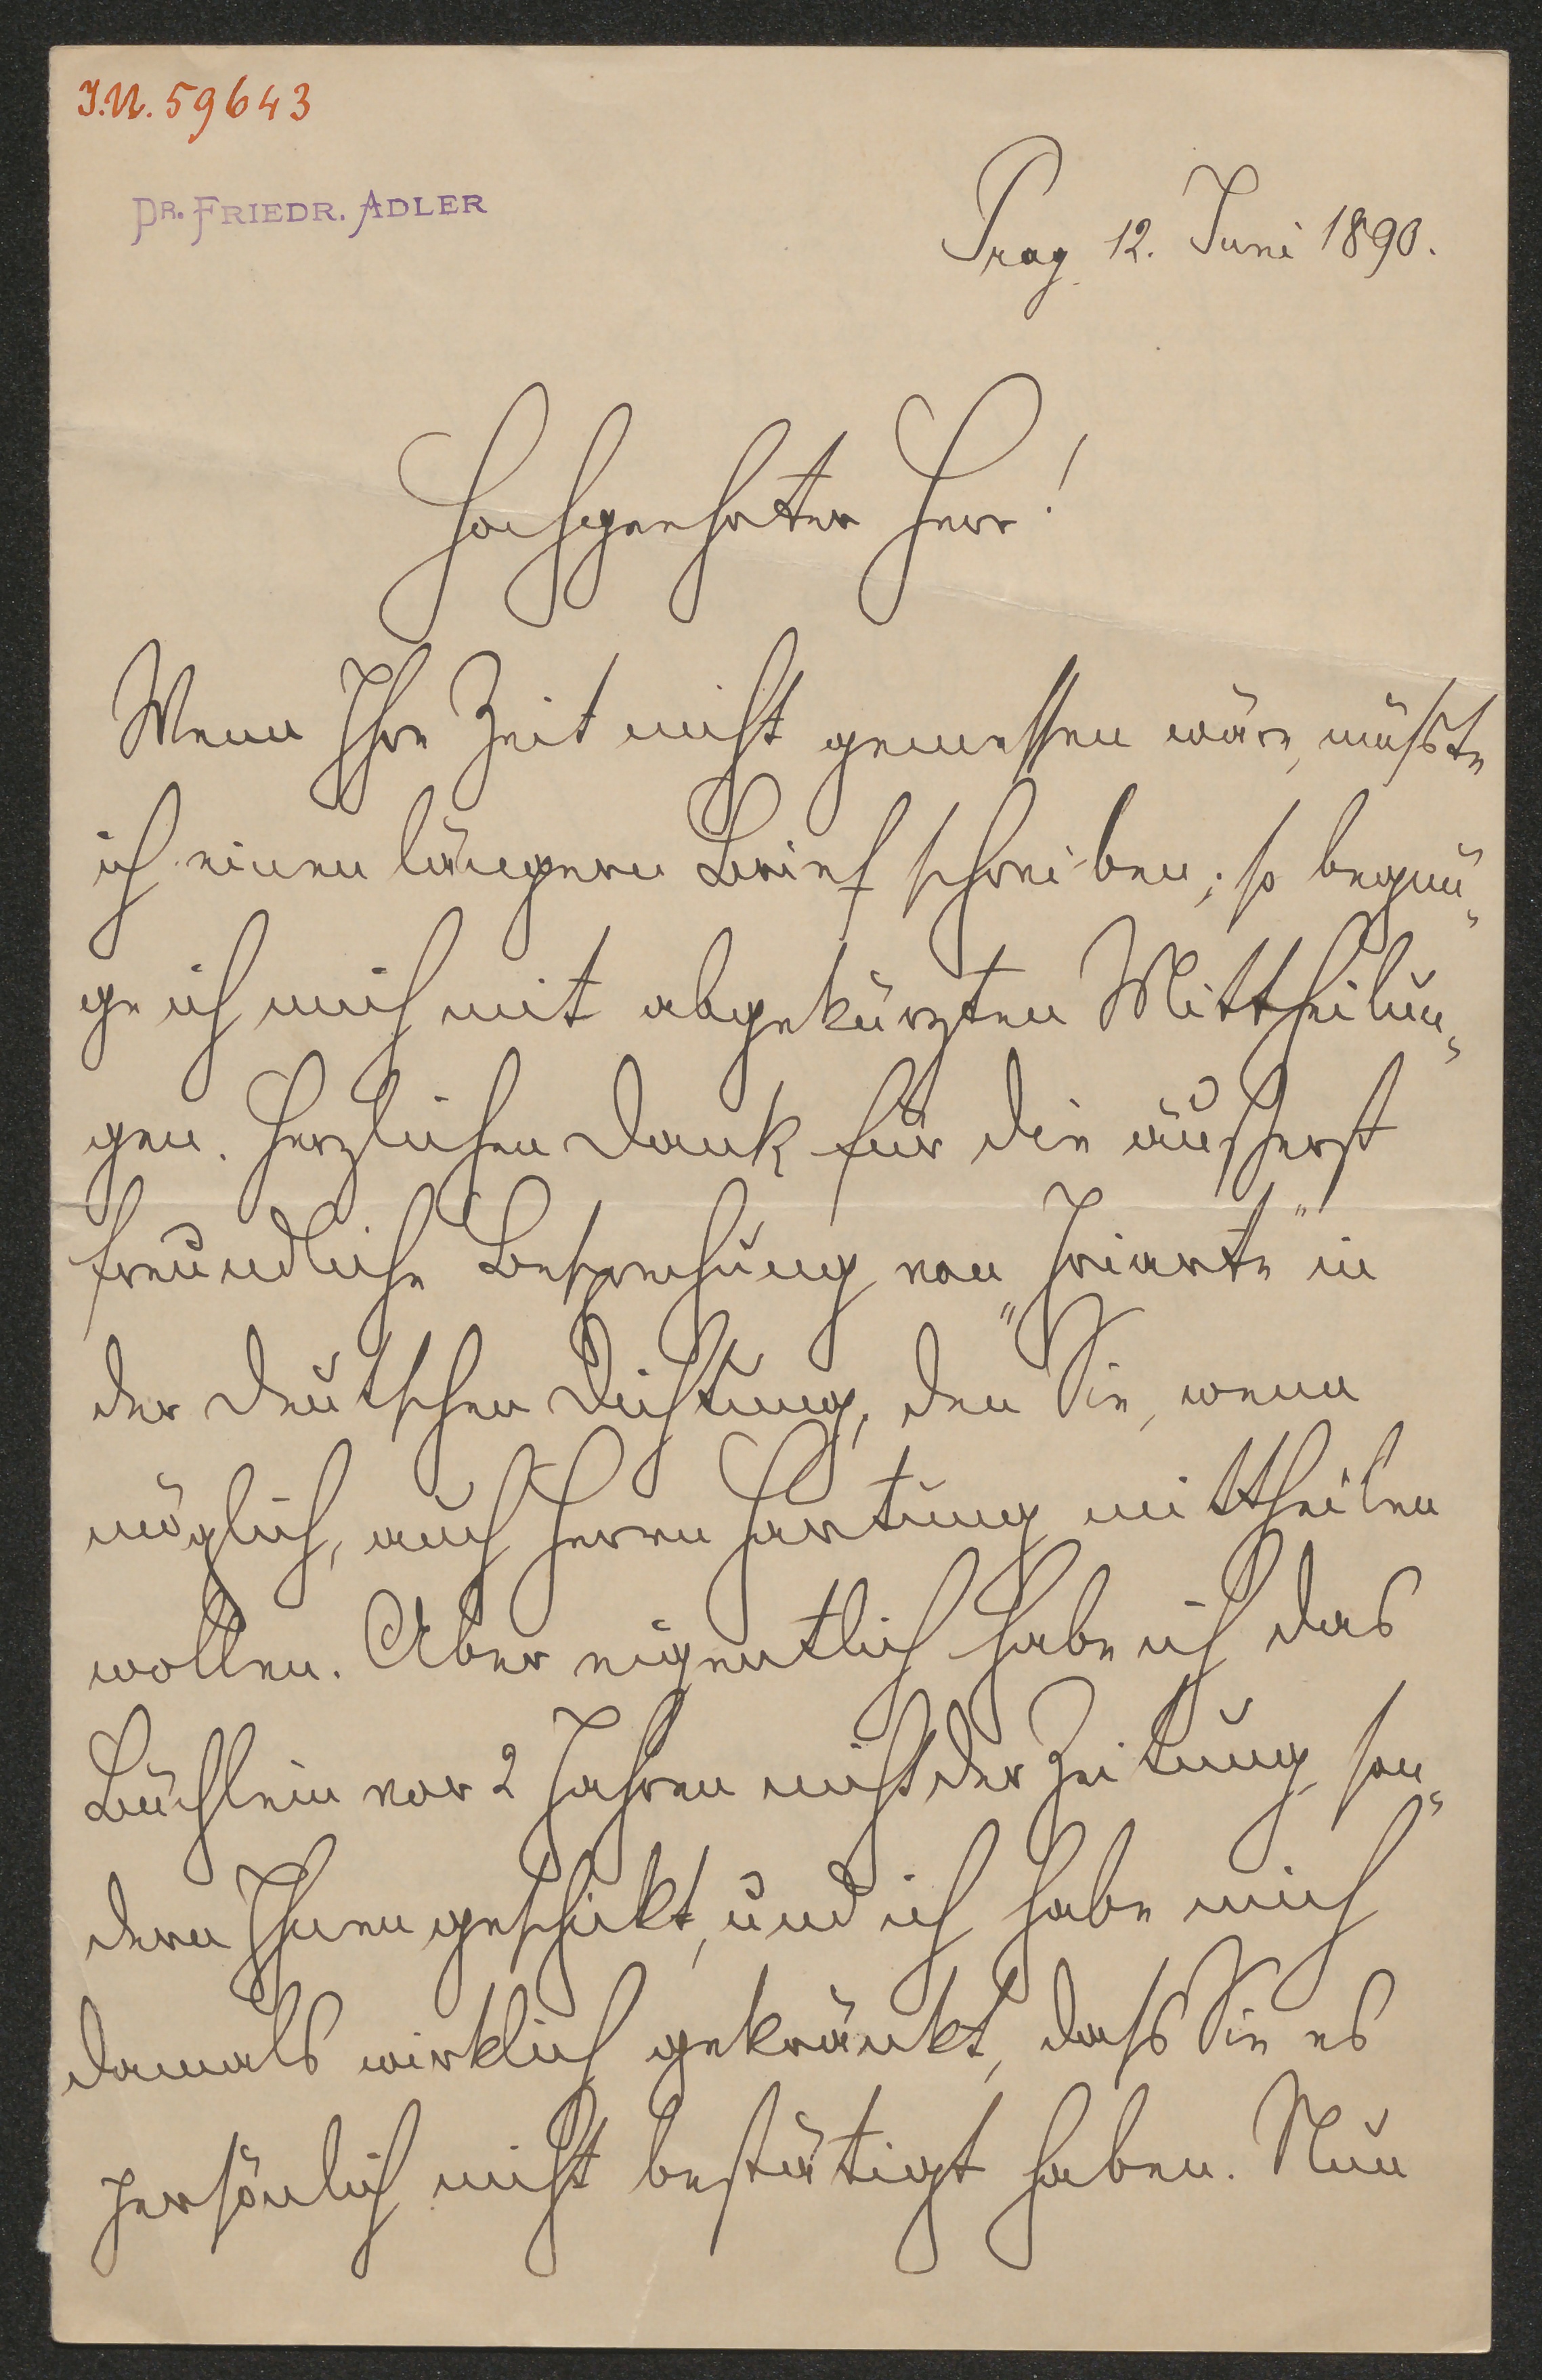 I.N. 59643
DR. FRIEDR. ADLER
Prag 12. Juni 1890.
Hochgeehrter Herr!
Wenn Ihre Zeit nicht gemessen wäre, müßte
ich einen längeren Brief schreiben; so begnü„
ge ich mich mit abgekürzten Mittheilun„
gen. Herzlichen Dank für die äußerst
freundliche Besprechung von „Iriarte" in
der Deutschen Dichtung, den Sie, wenn
möglich, auch Herrn Hartung mittheilen
wollen. Aber eigentlich habe ich das
Büchlein vor 2 Jahren nicht der Zeitung son„
dern Ihnen geschickt, und ich habe mich
damals wirklich gekränkt, daß Sie es
persönlich nicht bestätigt haben. Nun